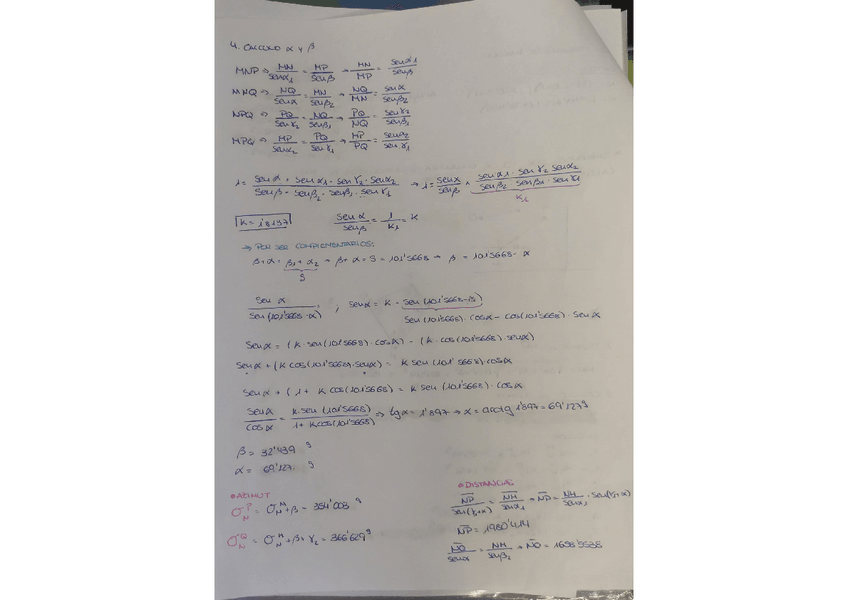 4. CALCULO α y β
MNP → MN/sen α1 = MP/sen β → MN/MP = sen α1/sen β
MNQ → NQ/sen α = MN/sen β2 → NQ/MN = sen α/sen β2
NPQ → PQ/sen γ2 = NQ/sen β1 → PQ/NQ = sen γ2/sen β1
MPQ → MP/sen α2 = PQ/sen γ1 → MP/PQ = sen α2/sen γ1
1 = sen α · sen α1 · sen γ2 · sen α2 / sen β · sen β2 · sen β1 · sen γ1 → 1 = sen α/sen β · sen α1 · sen γ2 sen α2 / sen β2 sen β1 · sen γ1
K1
K = 1'8197 sen α/sen β = 1/K1 = K
→ POR SER COMPLEMENTARIOS:
β+α = β1 + α2 → β+α = S = 101'5668 → β = 101'5668 - α
S
sen α / sen(101'5668-α) ; sen α = K · sen(101'5668-α)
sen(101'5668) · cos α - cos(101'5668) · sen α
sen α = (K · sen(101'5668) · cos α) - (K · cos(101'5668) · sen α)
sen α + (K cos(101'5668) · sen α) = K sen(101'5668) · cos α
sen α + (1 + K cos(101'5668) = K sen(101'5668) · cos α
sen α/cos α = K sen(101'5668) / 1 + K cos(101'5668) ⇒ tg α = 1'897 → α = arctg 1'897 = 69'127g
β = 32'439 g
α = 69'127 g
• AZIMUT
σ_N^P = σ_N^M + β = 334'008 g
σ_N^Q = σ_N^M + β + γ2 = 366'629 g
• DISTANCIAS
NP/sen(γ1+α) = NM/sen α1 → NP = NM/sen α1 · sen(γ1+α)
NP = 1980'414
NQ/sen α = NM/sen β2 → NQ = 1698'5538